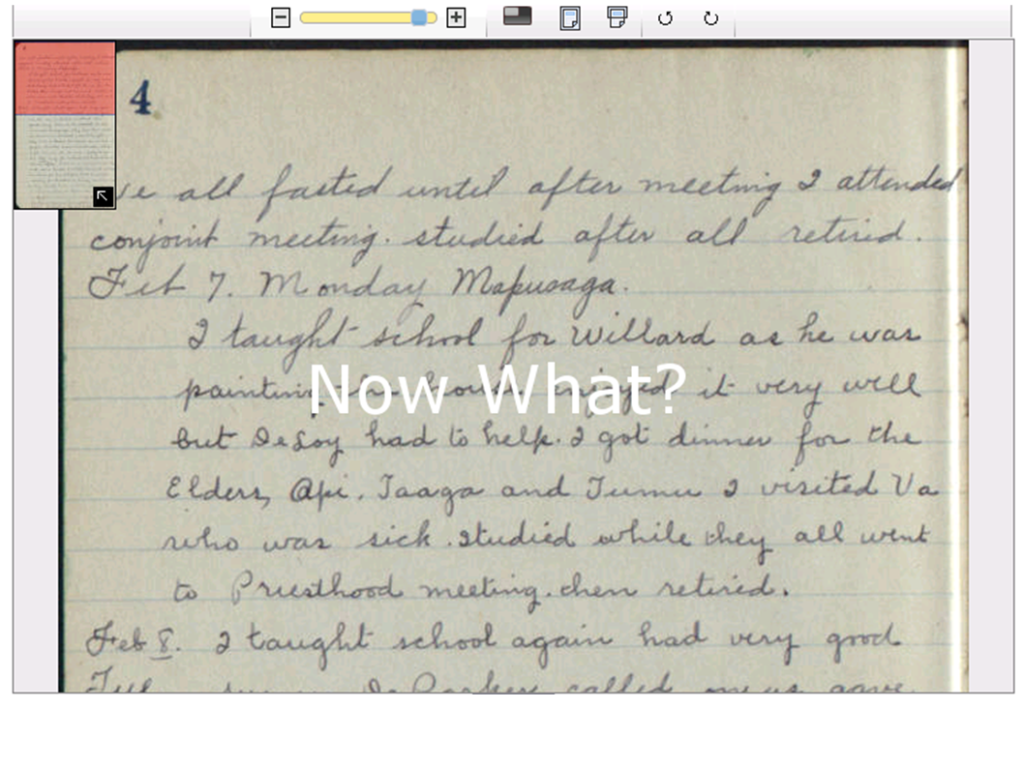 4
we all fasted until after meeting I attended
conjoint meeting. studied after all retired.
Feb 7. Monday Mapusaga.
I taught school for Willard as he was
painting the house enjoyed it very well
Now What?
but DeLoy had to help. I got dinner for the
Elders, Api, Taaga and Tumu I visited Va
who was sick. studied while they all went
to Priesthood meeting. then retired.
Feb 8. I taught school again had very good
called